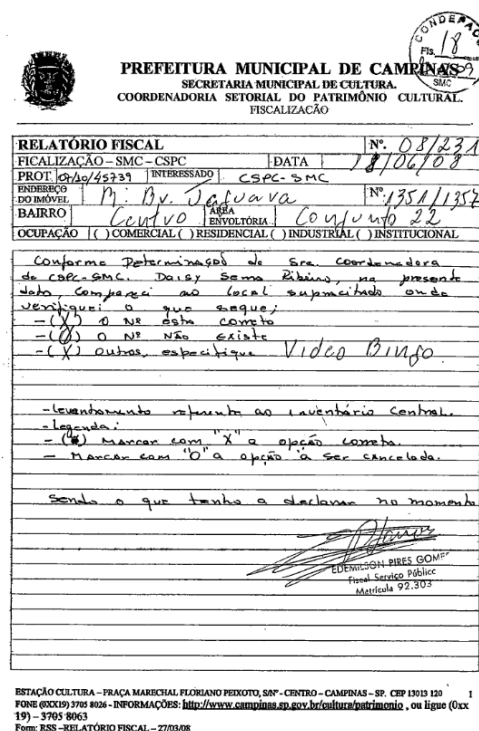 CONDEPACC
Fls. 18
SMC
PREFEITURA MUNICIPAL DE CAMPINAS
SECRETARIA MUNICIPAL DE CULTURA.
COORDENADORIA SETORIAL DO PATRIMÔNIO CULTURAL.
FISCALIZAÇÃO
RELATÓRIO FISCAL Nº. 08/231
FICALIZAÇÃO – SMC – CSPC DATA 18/06/08
PROT. 07/10/45739 INTERESSADO CSPC-SMC
ENDEREÇO DO IMÓVEL Nº. 1351/1357
BAIRRO Centro ÁREA ENVOLTÓRIA Conjunto 22
OCUPAÇÃO ( ) COMERCIAL ( ) RESIDENCIAL ( ) INDUSTRIAL ( ) INSTITUCIONAL
Conforme Determinação de Sra. Coordenadora
da CSPC-SMC. Daisy Serra Ribeiro, na presente
data, compareci ao local supracitado onde
verifiquei o que segue;
-(X) O Nº está correto
-(O) O Nº Não Existe
-(X) outros, especifique Video Bingo
-levantamento referente ao inventário Central.
-Legenda:
- Marcar com "X" a opção correta.
- Marcar com "O" a opção à ser cancelada.
Sendo o que tenho a declarar no momento
EDEMILSON PIRES GOMES
Fiscal Serviço Público
Matrícula 92.303
ESTAÇÃO CULTURA – PRAÇA MARECHAL FLORIANO PEIXOTO, S/Nº - CENTRO – CAMPINAS – SP. CEP 13013 120 1
FONE (0XX19) 3705 8026 - INFORMAÇÕES: http://www.campinas.sp.gov.br/cultura/patrimonio , ou ligue (0xx
19) – 3705 8063
Form: RSS –RELATÓRIO FISCAL – 27/03/08